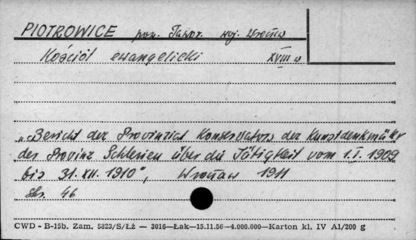 PIOTROWICE pow. Jawor. woj. Wrocław
Kościół ewangelicki XVIII w
„Bericht der Provinzial Konservators der Kunstdenkmäler
der Provinz Schlesien über die Tätigkeit vom 1.I.1909
bis 31.XII.1910", Wrocław 1911
str. 46
CWD - B-15b. Zam. 5823/S/Łż — 3016—Łak—15.11.56—4.000.000—Karton kl. IV A1/200 g